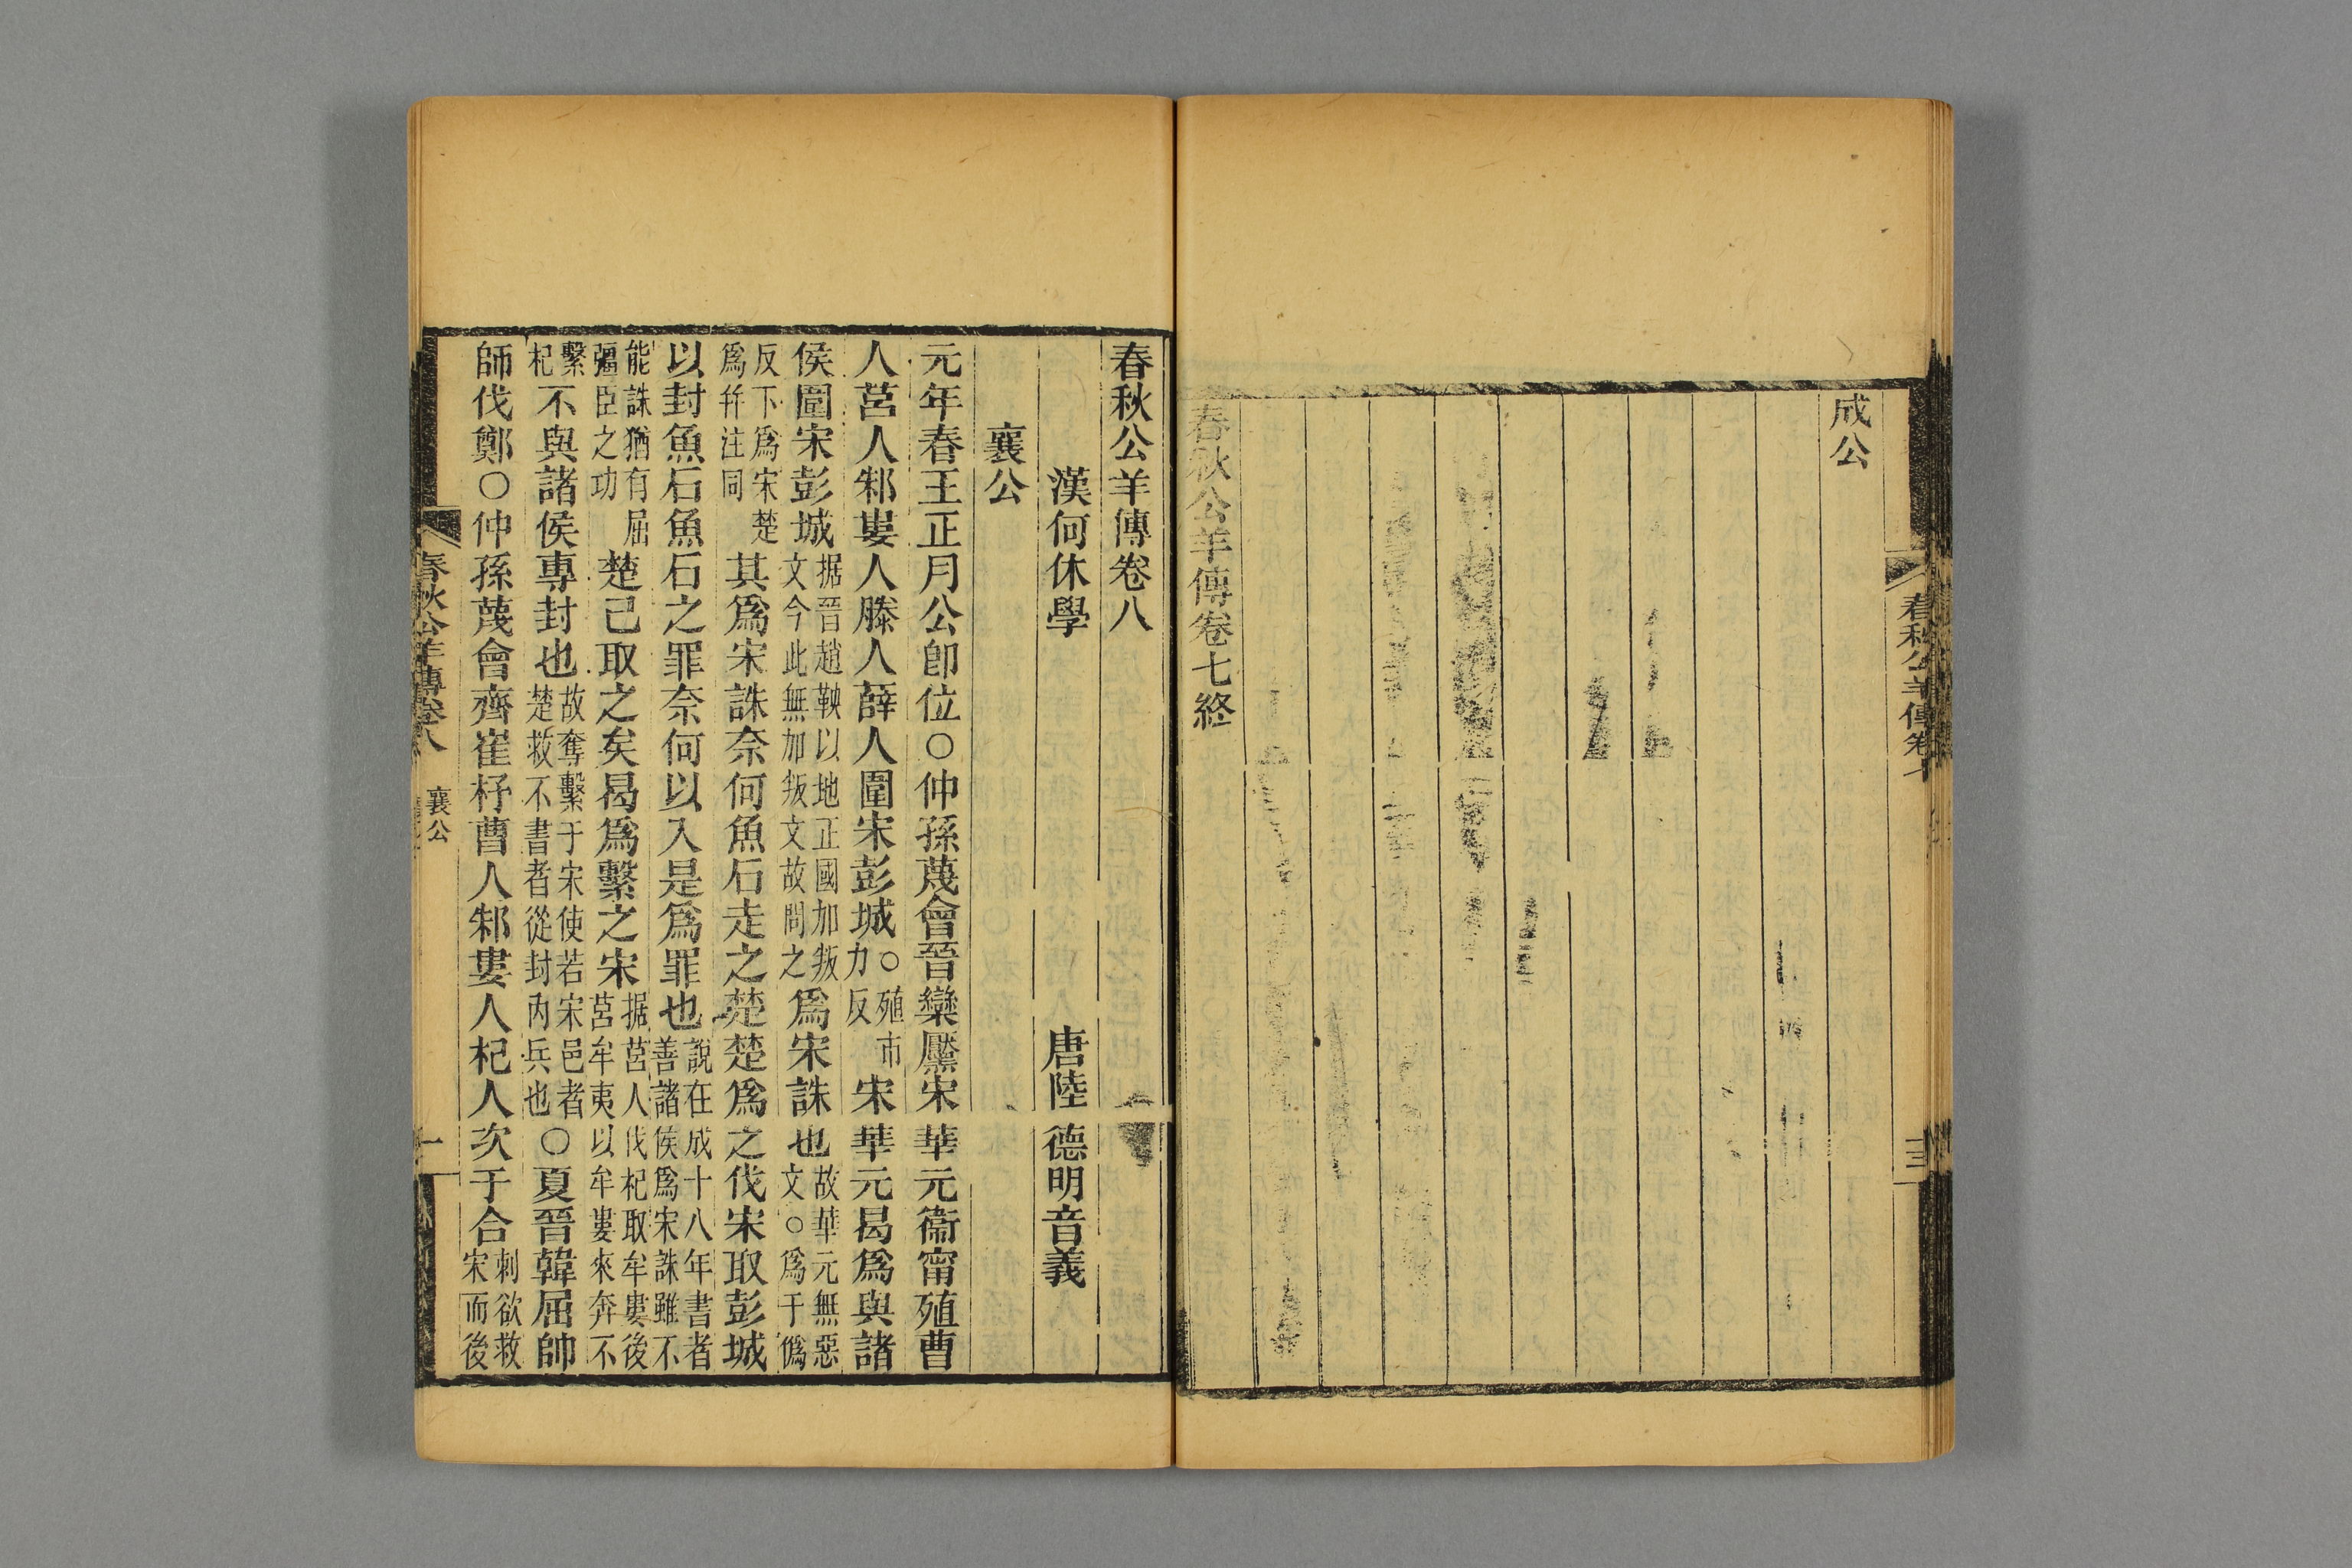 成公
春秋公羊傳卷七終
春秋公羊傳卷八
漢何休學 唐陸德明音義
襄公
元年春王正月公卽位○仲孫蔑會晉欒黶宋華元衞甯殖曹
人莒人邾婁人滕人薛人圍宋彭城○殖市力反宋華元曷爲與諸
侯圍宋彭城据晉趙鞅以地正國加叛文今此無加叛文故問之爲宋誅也故華元無惡文○爲于僞
反下爲宋楚爲幷注同其爲宋誅奈何魚石走之楚楚爲之伐宋取彭城
以封魚石魚石之罪奈何以入是爲罪也說在成十八年書者善諸侯爲宋誅雖不
能誅猶有屈彊臣之功楚已取之矣曷爲繫之宋据莒人伐杞取牟婁後莒牟夷以牟婁來奔不
繫杞不與諸侯專封也故奪繫于宋使若宋邑者楚救不書者從封內兵也○夏晉韓屈帥
師伐鄭○仲孫蔑會齊崔杼曹人邾婁人杞人次于合刺欲救宋而後
春秋公羊傳卷八 襄公 一